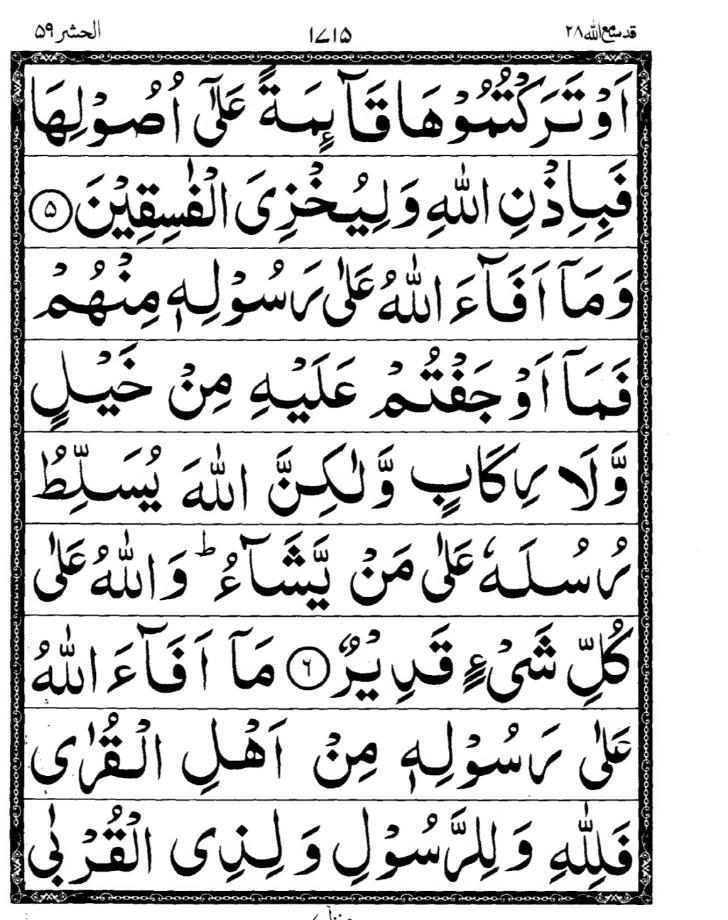 قد سمع الله ۲۸ ۱۷۱۵ الحشر ۵۹
اَوۡ تَرَكۡتُمُوۡهَا قَآئِمَةً عَلٰٓى اُصُوۡلِهَا
فَبِاِذۡنِ اللّٰهِ وَلِيُخۡزِىَ الۡفٰسِقِيۡنَ ۵
وَمَاۤ اَفَآءَ اللّٰهُ عَلٰى رَسُوۡلِهٖ مِنۡهُمۡ
فَمَاۤ اَوۡجَفۡتُمۡ عَلَيۡهِ مِنۡ خَيۡلٍ
وَّلَا رِكَابٍ وَّلٰكِنَّ اللّٰهَ يُسَلِّطُ
رُسُلَهٗ عَلٰى مَنۡ يَّشَآءُ ؕ وَاللّٰهُ عَلٰى
كُلِّ شَىۡءٍ قَدِيۡرٌ ۶ مَاۤ اَفَآءَ اللّٰهُ
عَلٰى رَسُوۡلِهٖ مِنۡ اَهۡلِ الۡقُرٰى
فَلِلّٰهِ وَلِلرَّسُوۡلِ وَلِذِى الۡقُرۡبٰى